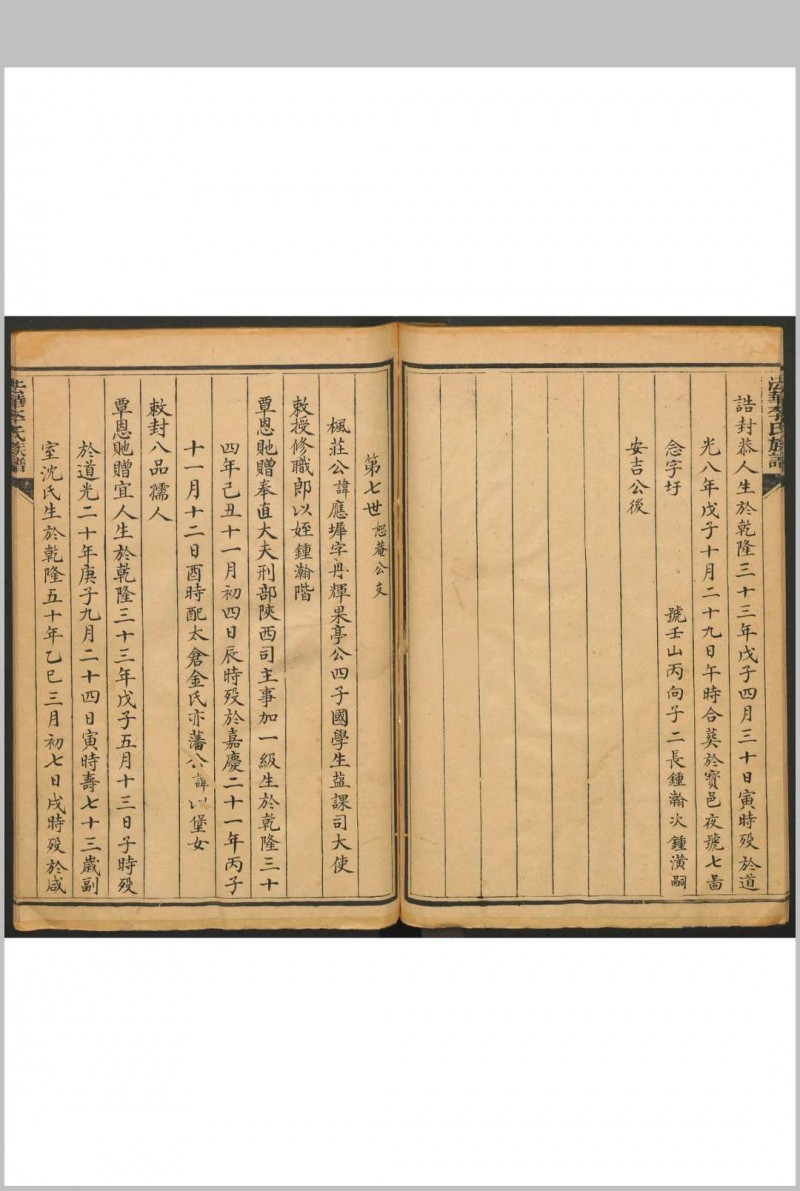 法華李氏族譜
誥封恭人生於乾隆三十三年戊子四月三十日寅時歿於道
光八年戊子十月二十九日午時合葬於寶邑夜號七啚
念字圩　號壬山丙向子二長鍾瀚次鍾潢嗣
安吉公後
第七世恕菴公支
楓莊公諱應墀字丹輝果亭公四子國學生盐課司大使
敕授修職郎以姪鍾瀚階
覃恩貤贈奉直大夫刑部陝西司主事加一級生於乾隆三十
四年己丑十一月初四日辰時歿於嘉慶二十一年丙子
十一月十二日酉時配太倉金氏亦藩公諱以堡女
敕封八品孺人
覃恩貤贈宜人生於乾隆三十三年戊子五月十三日子時歿
於道光二十年庚子九月二十四日寅時壽七十三歲副
室沈氏生於乾隆五十年乙巳三月初七日戌時歿於咸
法華李氏族譜